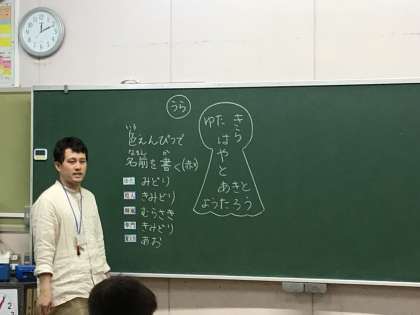 うら
いろ
色えんぴつで
なまえ か
名前を書く(赤)
みどり
きみどり
むらさき
きみどり
あお
ゆた きら
はやと
あきと
ようたろう